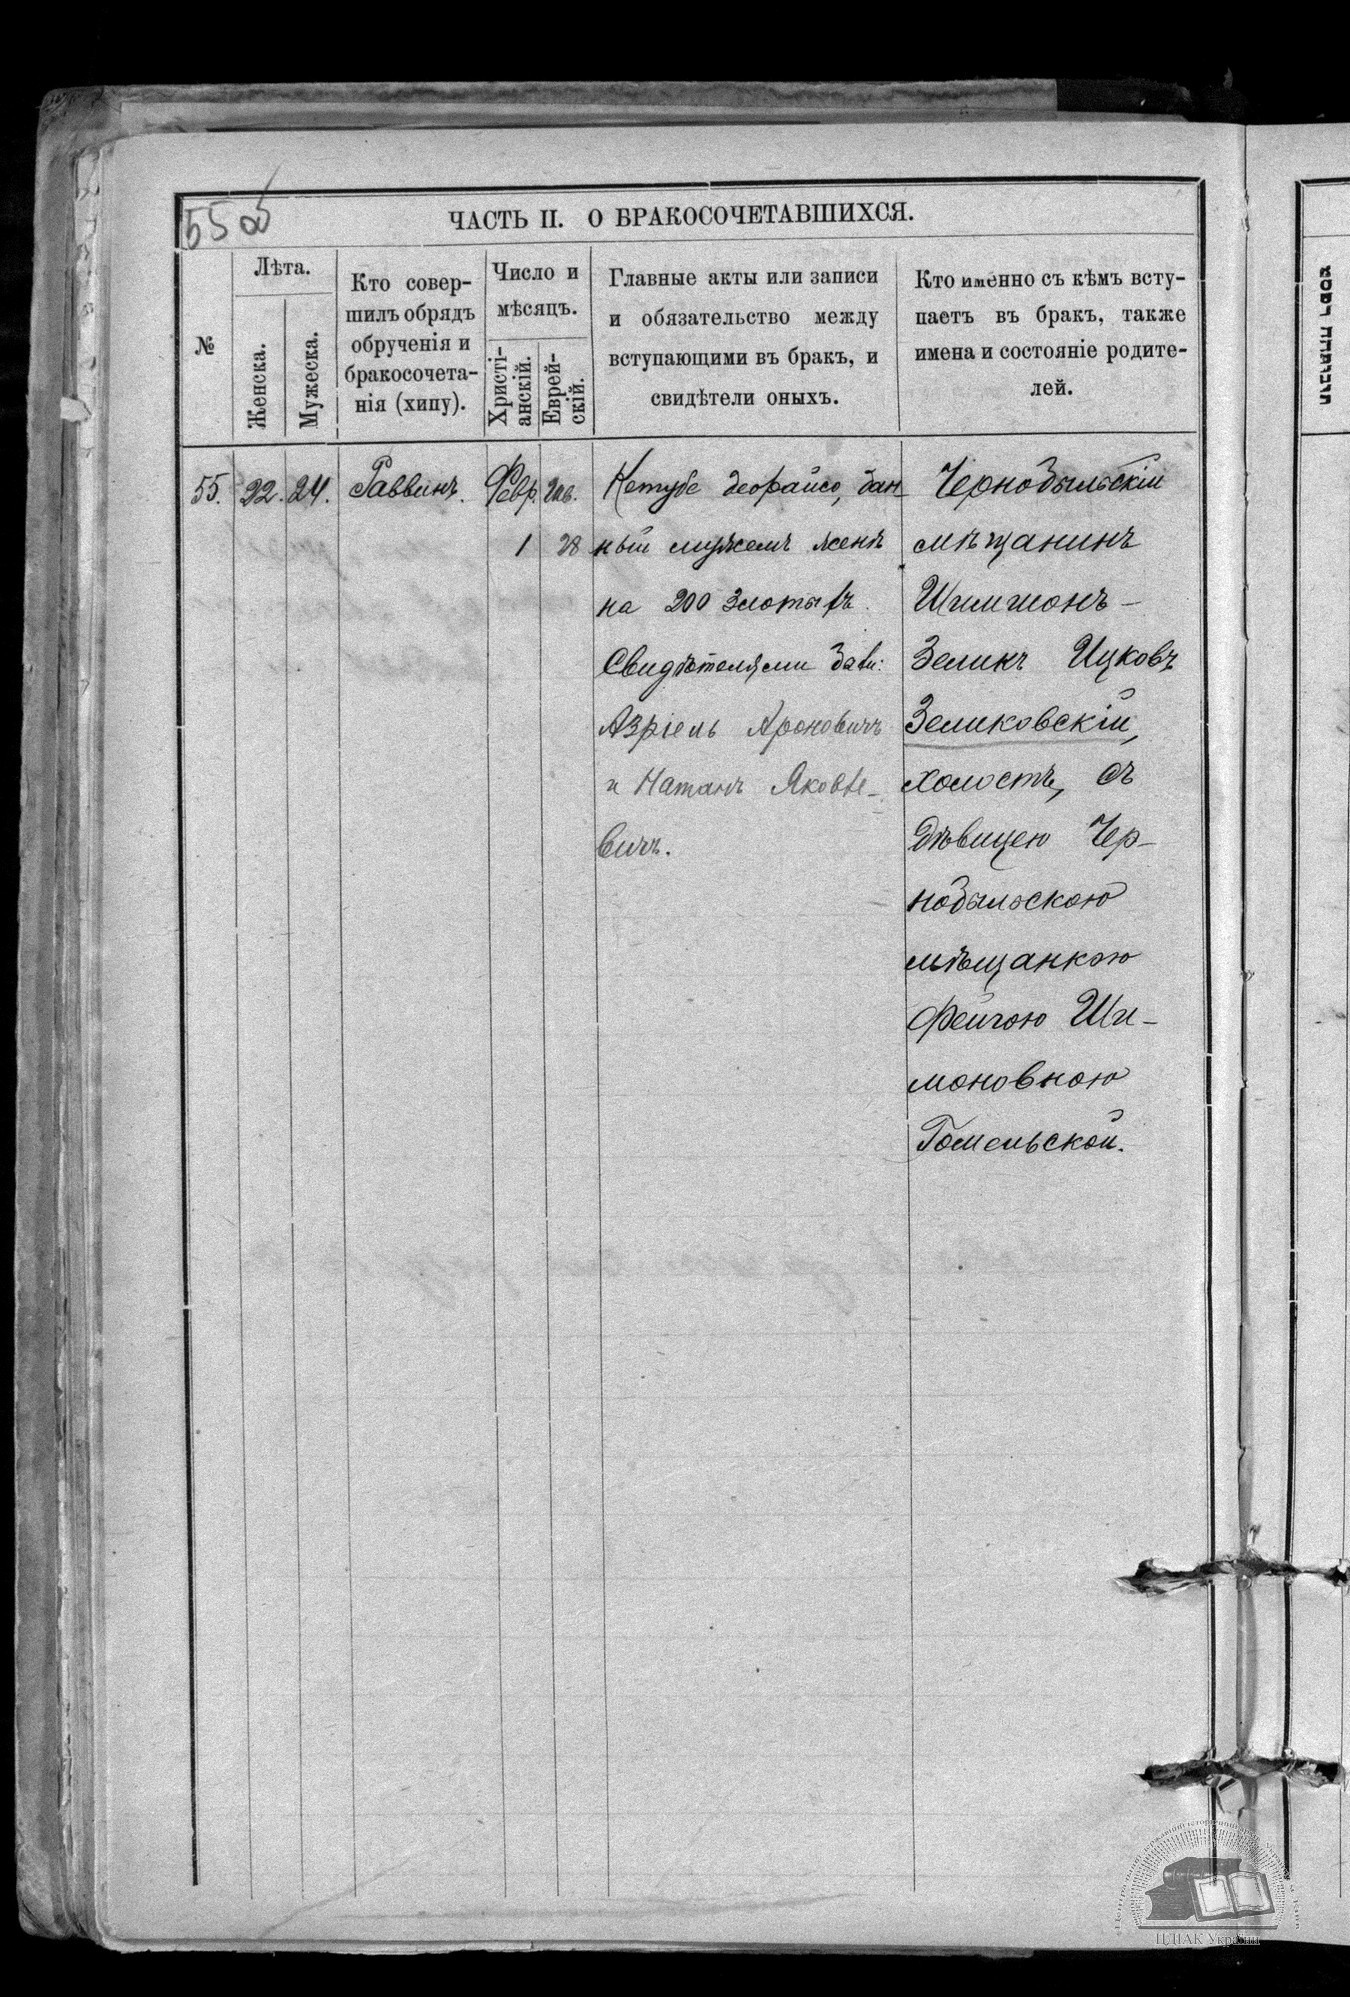 55 об
ЧАСТЬ II. О БРАКОСОЧЕТАВШИХСЯ.
№
Лѣта.
Женска.
Мужеска.
Кто совер-
шилъ обрядъ
обрученія и
бракосочета-
нія (хипу).
Число и
мѣсяцъ.
Христі-
анскій.
Еврей-
скій.
Главные акты или записи
и обязательство между
вступающими въ бракъ, и
свидѣтели оныхъ.
Кто именно съ кѣмъ всту-
паетъ въ бракъ, также
имена и состояніе родите-
лей.
55. 22. 24. Раввинъ. Февр.
1 28
Кетубе деорайсо, дан-
ный мужемъ женѣ
на 200 злотыхъ.
Свидѣтелями были:
Азріель Ароновичъ
и Натанъ Яковле-
вичъ.
Чернобыльскій
мѣщанинъ
Шимшонъ-
Зеликъ Ицковъ
Зеликовскій,
холостъ, съ
дѣвицею Чер-
нобыльскою
мѣщанкою
Фейгою Ши-
моновною
Гомельской.
ЦДІАК України